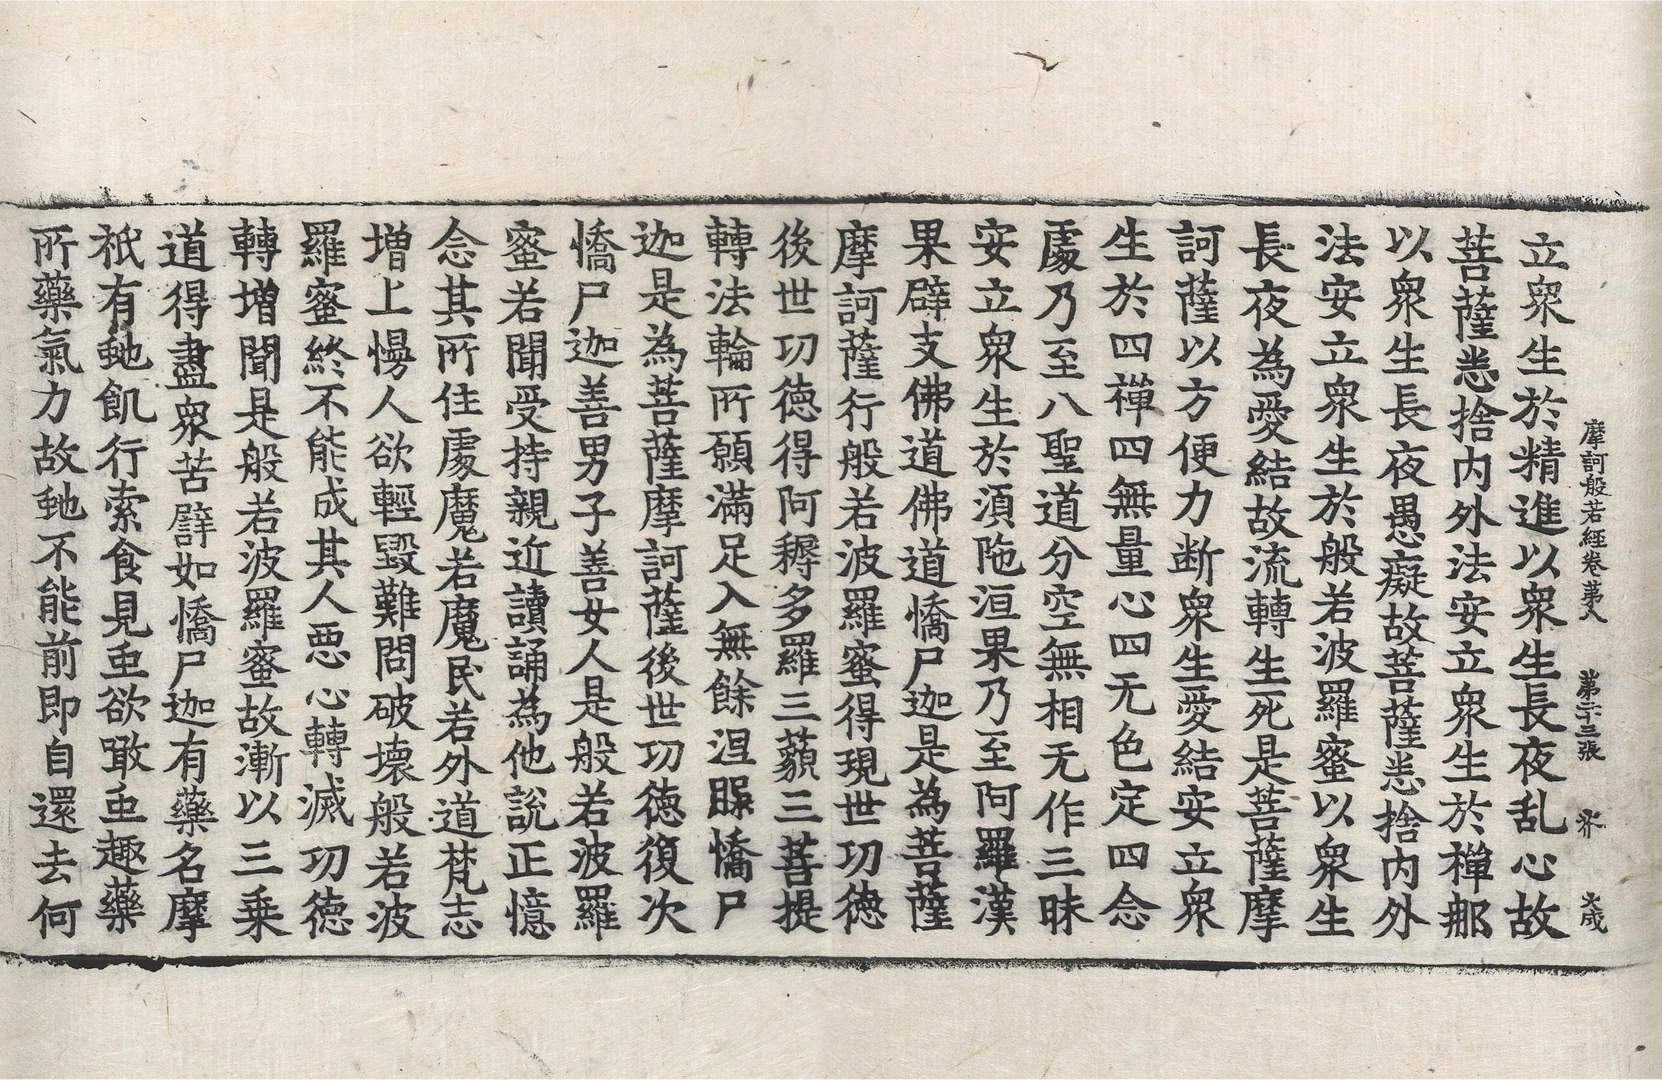 摩訶般若経卷苐八 第二十三張 芥 文成
立衆生於精進以衆生長夜乱心故
菩薩悉捨内外法安立衆生於禪那
以衆生長夜愚癡故菩薩悉捨内外
法安立衆生於般若波羅蜜以衆生
長夜為愛結故流轉生死是菩薩摩
訶薩以方便力断衆生愛結安立衆
生於四禪四無量心四无色定四念
處乃至八聖道分空無相无作三昧
安立衆生於須陁洹果乃至阿羅漢
果辟支佛道佛道憍尸迦是為菩薩
摩訶薩行般若波羅蜜得現世功徳
後世功徳得阿耨多羅三藐三菩提
轉法輪所願滿足入無餘涅槃憍尸
迦是為菩薩摩訶薩後世功徳復次
憍尸迦善男子善女人是般若波羅
蜜若聞受持親近讀誦為他說正憶
念其所住處魔若魔民若外道梵志
增上慢人欲輕毀難問破壞般若波
羅蜜終不能成其人惡心轉滅功徳
轉增聞是般若波羅蜜故漸以三乗
道得盡衆苦譬如憍尸迦有藥名摩
祇有虵飢行索食見虫欲噉虫趣藥
所藥氣力故虵不能前即自還去何